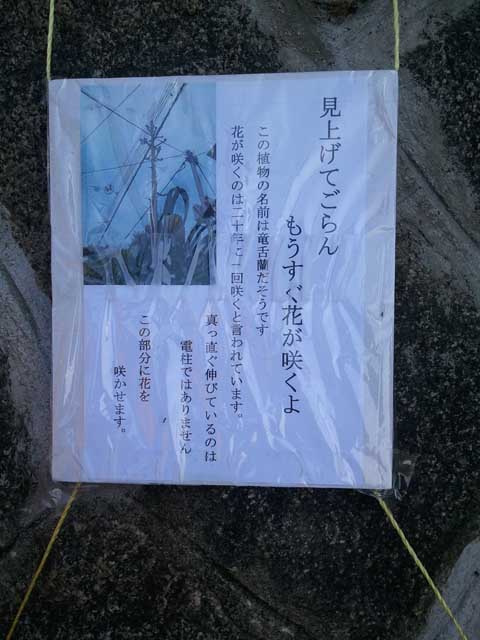 見上げてごらん
もうすぐ花が咲くよ
この植物の名前は竜舌蘭だそうです
花が咲くのは二十年に一回咲くと言われています。
真っ直ぐ伸びているのは
電柱ではありません
この部分に花を
咲かせます。